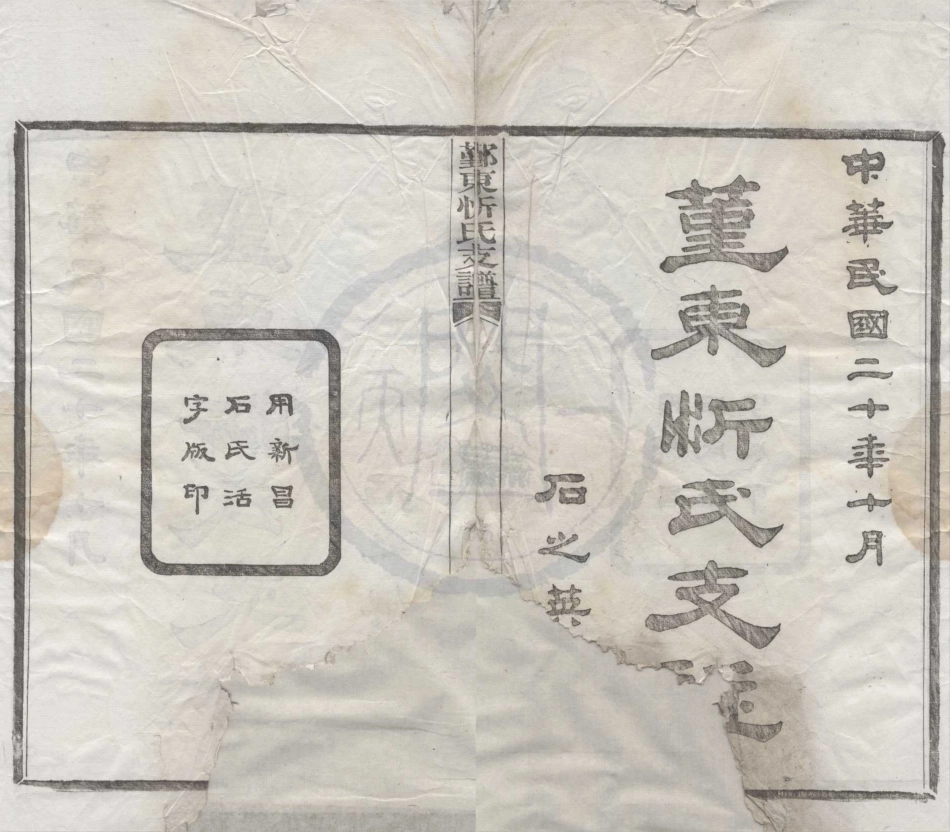 中華民國二十年十月
堇東忻氏支
石之英
鄞東忻氏支譜
用新昌
石氏活
字版印